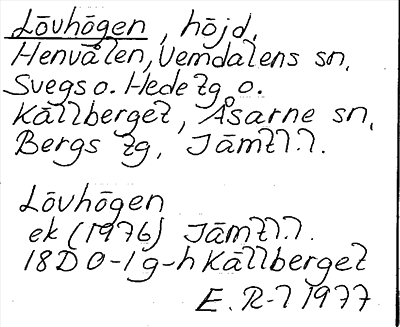 Lövhögen, höjd,
Henvålen, Vemdalens sn,
Svegs o. Hede tg o.
Källberget, Åsarne sn,
Bergs tg, Jämtl.l.
Lövhögen
ek (1976) Jämtl.l.
18D 0-1 g-h Källberget
E. R-l 1977